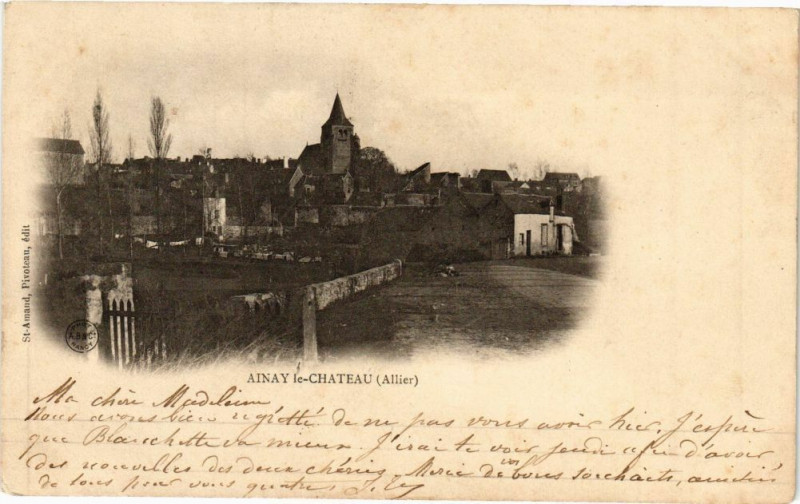 AINAY le-CHATEAU (Allier)
St-Amand, Pivoteau, édit
Ma chère Madeleine
Nous avons bien regretté de ne pas vous avoir hier. J'espère
que Blanchette va mieux. J'irai te voir jeudi afin d'avoir
des nouvelles des deux chéries. Merci de vos bons souhaits, amitiés
de tous pour vous quatre